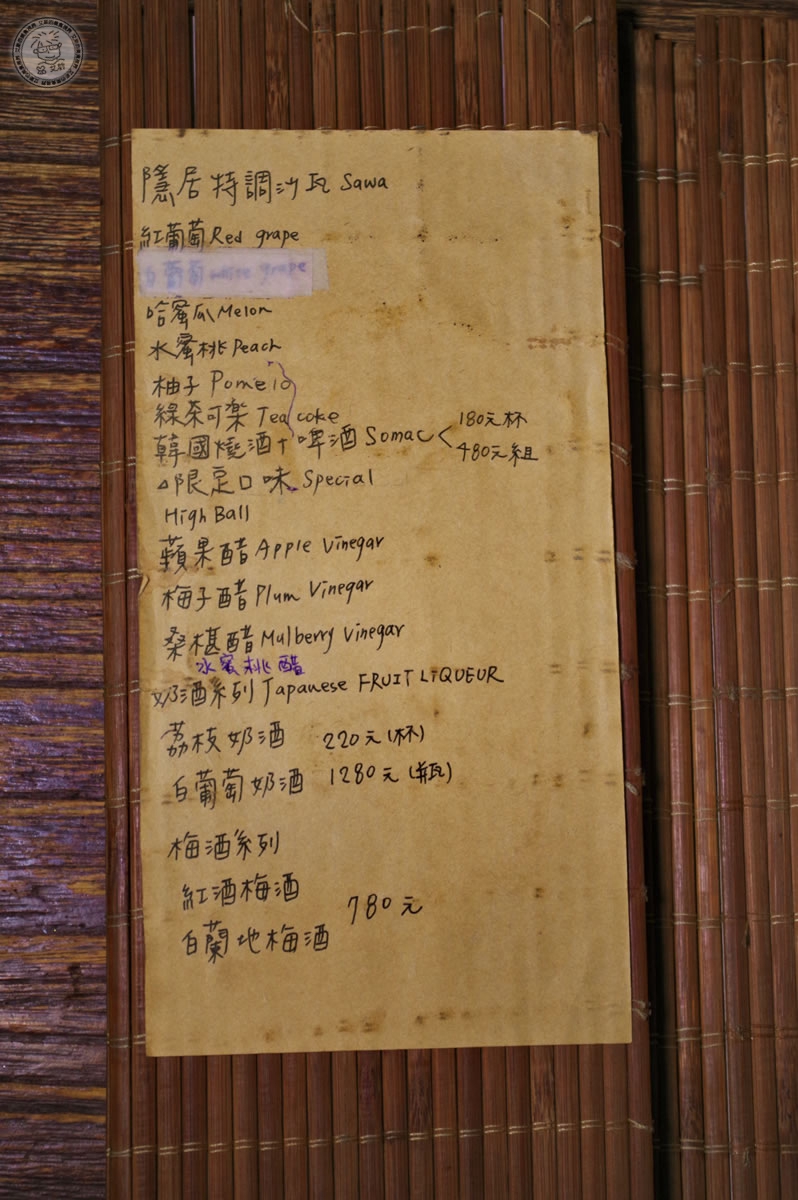 隱居特調沙瓦 Sawa
紅葡萄 Red grape
白葡萄 white grape
哈蜜瓜 Melon
水蜜桃 Peach
柚子 Pomelo
綠茶可樂 Tea coke
韓國燒酒+啤酒 Somac < 180元杯
480元組
△限定口味 Special
High Ball
蘋果醋 Apple Vinegar
梅子醋 Plum Vinegar
桑椹醋 Mulberry Vinegar
水蜜桃醋
奶酒系列 Japanese FRUIT LiQUEUR
荔枝奶酒 220元(杯)
白葡萄奶酒 1280元(瓶)
梅酒系列
紅酒梅酒
780元
白蘭地梅酒